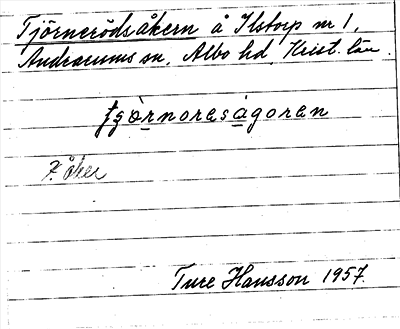 Tjörnerödsåkern å Ilstorp nr 1,
Andrarums sn, Albo hd, Krist. län.
tjörnoresågoren
F. åker
Ture Hansson 1957.